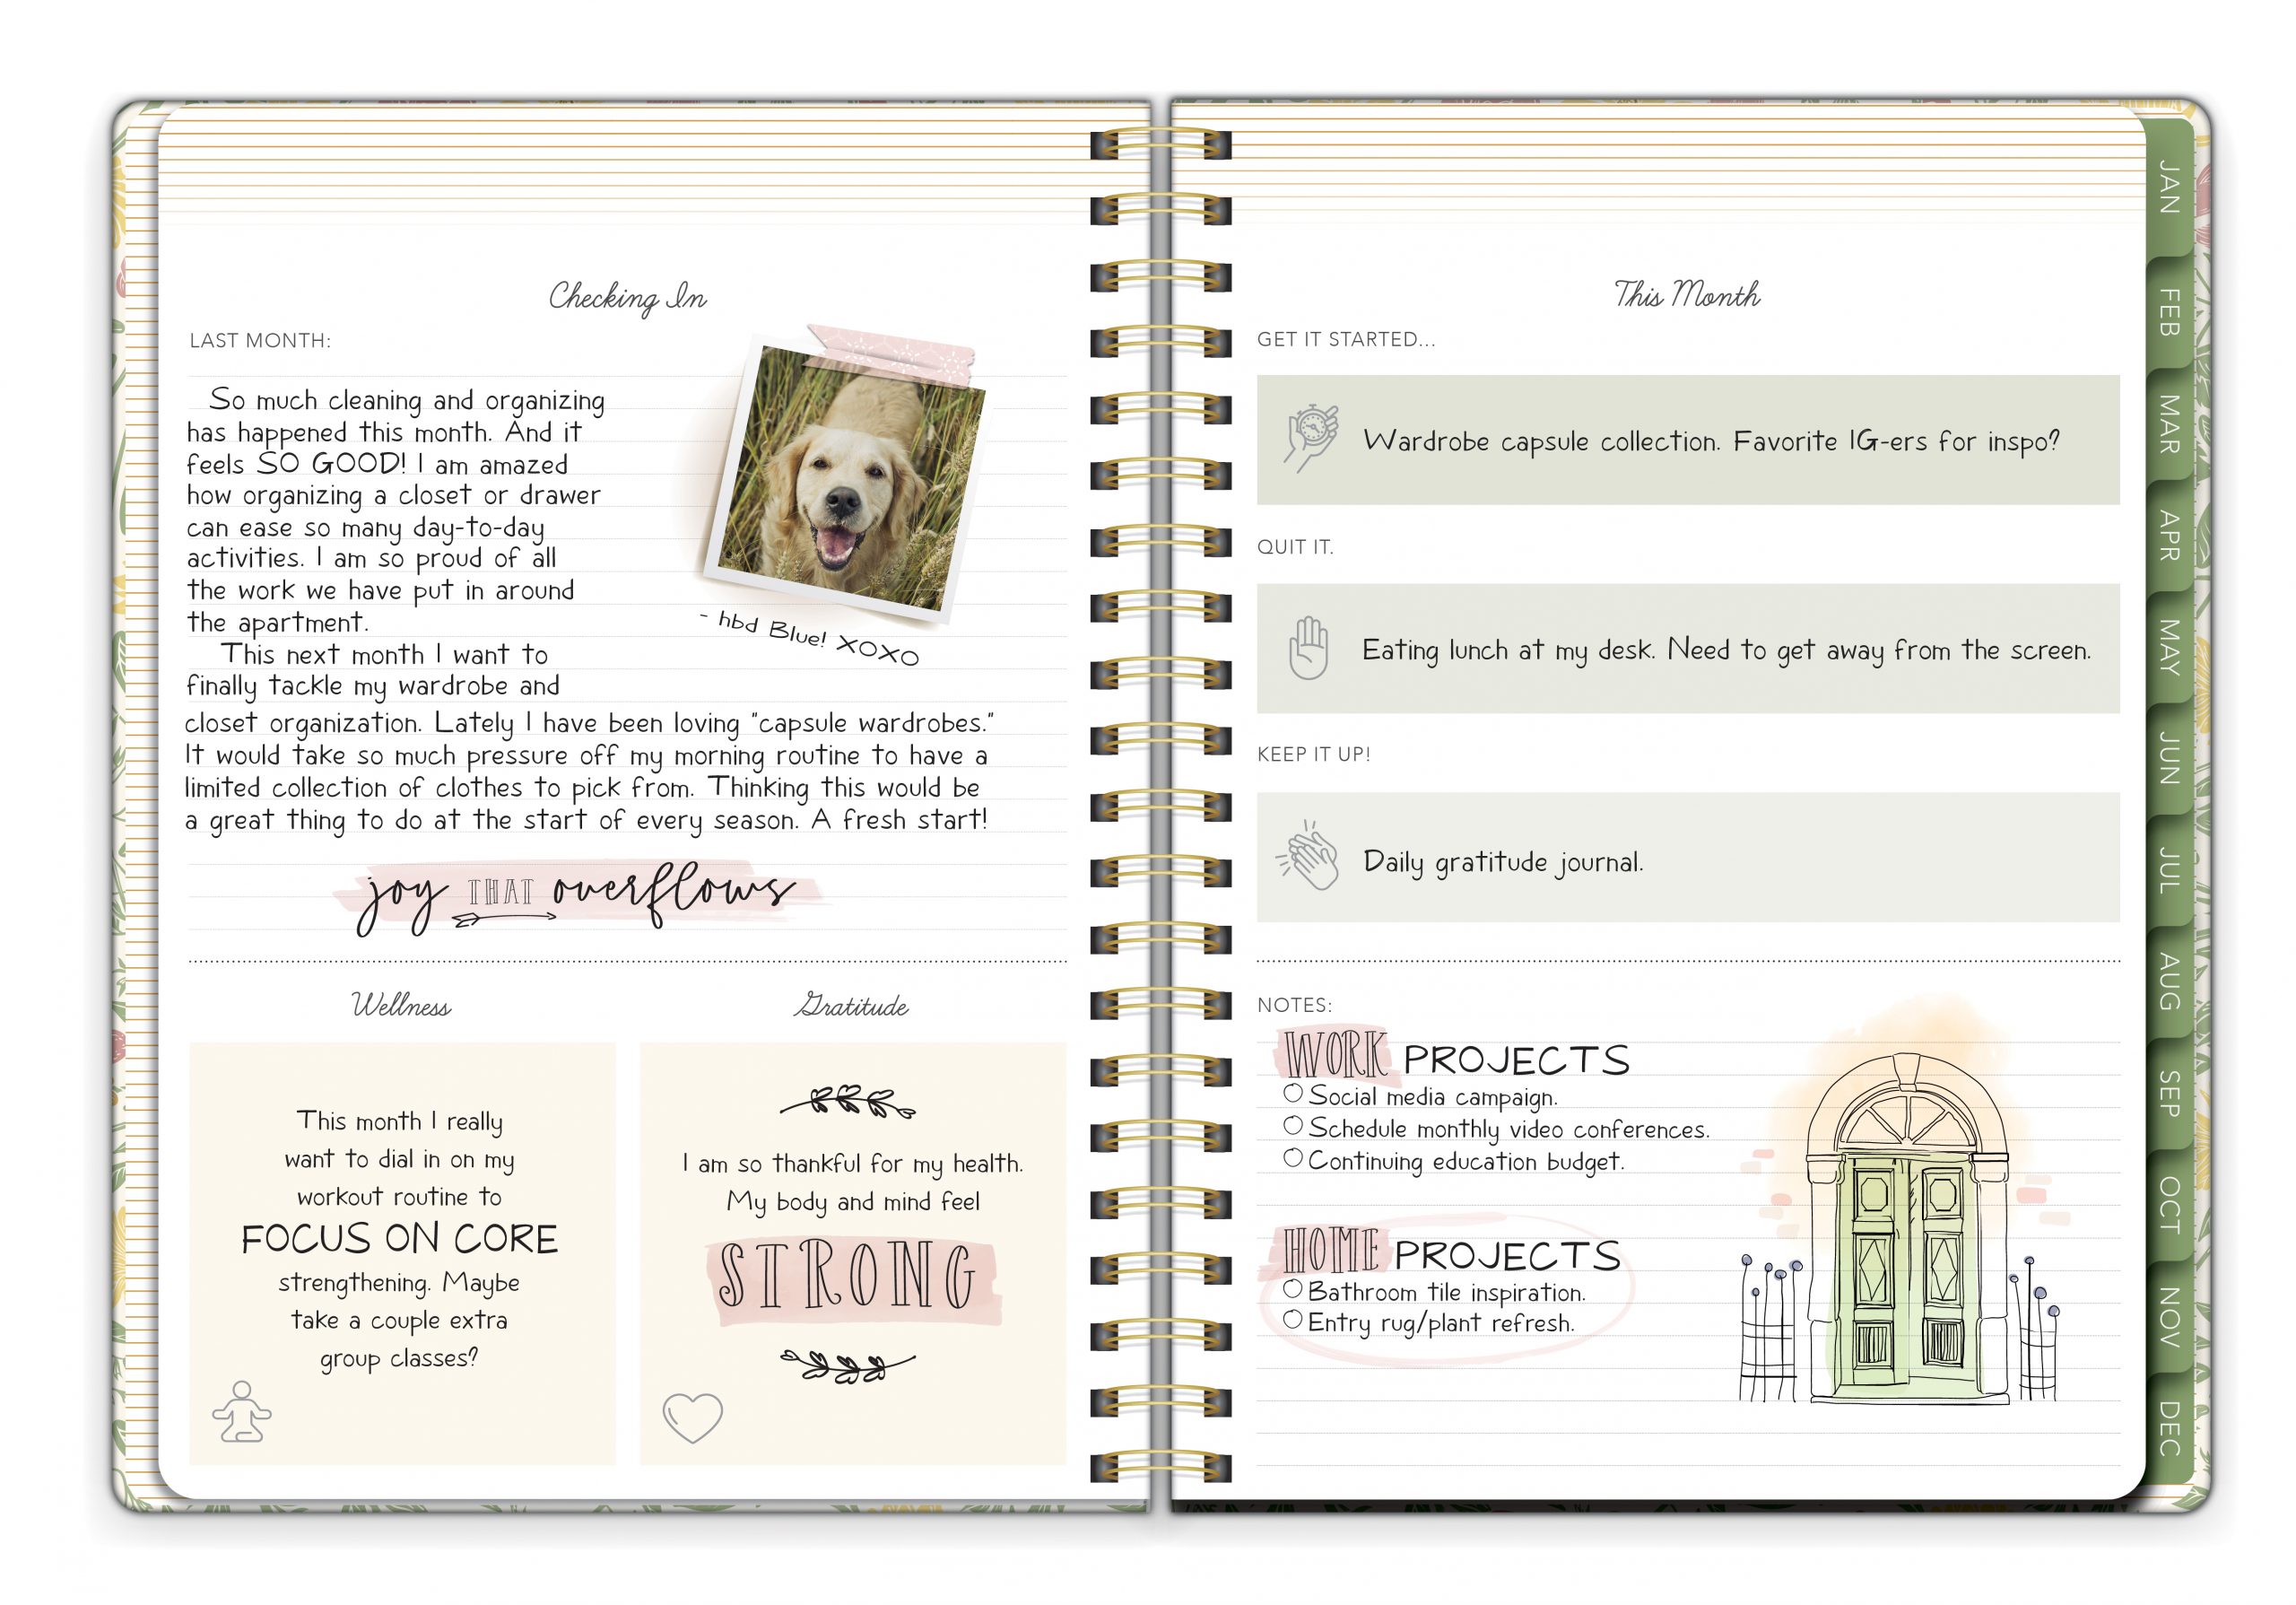 Checking In
LAST MONTH:
So much cleaning and organizing
has happened this month. And it
feels SO GOOD! I am amazed
how organizing a closet or drawer
can ease so many day-to-day
activities. I am so proud of all
the work we have put in around
the apartment.
This next month I want to
finally tackle my wardrobe and
closet organization. Lately I have been loving "capsule wardrobes."
It would take so much pressure off my morning routine to have a
limited collection of clothes to pick from. Thinking this would be
a great thing to do at the start of every season. A fresh start!
- hbd Blue! XOXO
joy THAT overflows
Wellness
This month I really
want to dial in on my
workout routine to
FOCUS ON CORE
strengthening. Maybe
take a couple extra
group classes?
Gratitude
I am so thankful for my health.
My body and mind feel
STRONG
This Month
GET IT STARTED...
Wardrobe capsule collection. Favorite IG-ers for inspo?
QUIT IT.
Eating lunch at my desk. Need to get away from the screen.
KEEP IT UP!
Daily gratitude journal.
NOTES:
WORK PROJECTS
Social media campaign.
Schedule monthly video conferences.
Continuing education budget.
HOME PROJECTS
Bathroom tile inspiration.
Entry rug/plant refresh.
JAN
FEB
MAR
APR
MAY
JUN
JUL
AUG
SEP
OCT
NOV
DEC